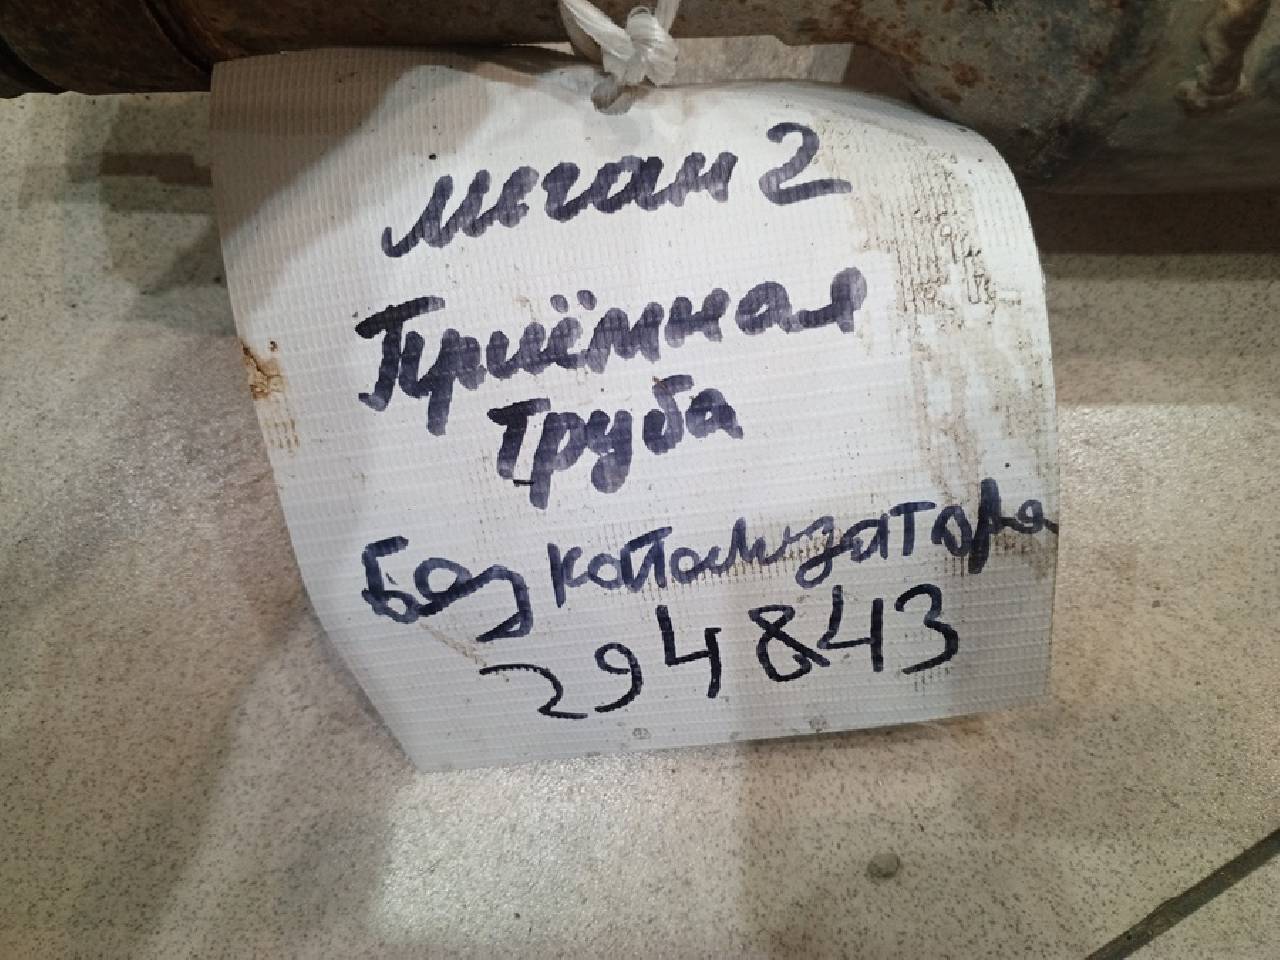 меган 2
Приёмная
труба
Без катализатора
294843